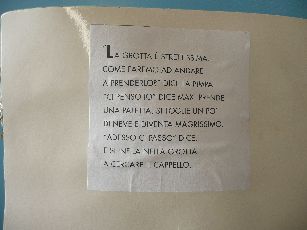 "LA GROTTA È STRETTISSIMA.
COME FAREMO AD ANDARE
A PRENDERLO?" DICE LA PIMPA.
"CI PENSO IO" DICE MAX. PRENDE
UNA PALETTA, SI TOGLIE UN PO'
DI NEVE E DIVENTA MAGRISSIMO.
"ADESSO CI PASSO" DICE.
E SE NE VA NELLA GROTTA
A CERCARE IL CAPPELLO.